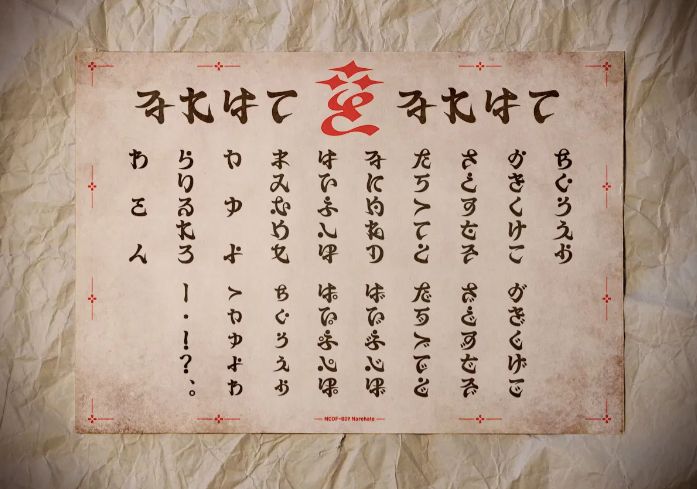 なれはて
なれはて
あいうえお
かきくけこ
さしすせそ
たちつてと
なにぬねの
はひふへほ
まみむめも
や ゆ よ
らりるれろ
わ を ん
がぎぐげご
ざじずぜぞ
だぢづでど
ばびぶべぼ
ぱぴぷぺぽ
ぁぃぅぇぉ
っゃゅょゎ
ー・！？、。
Narehate